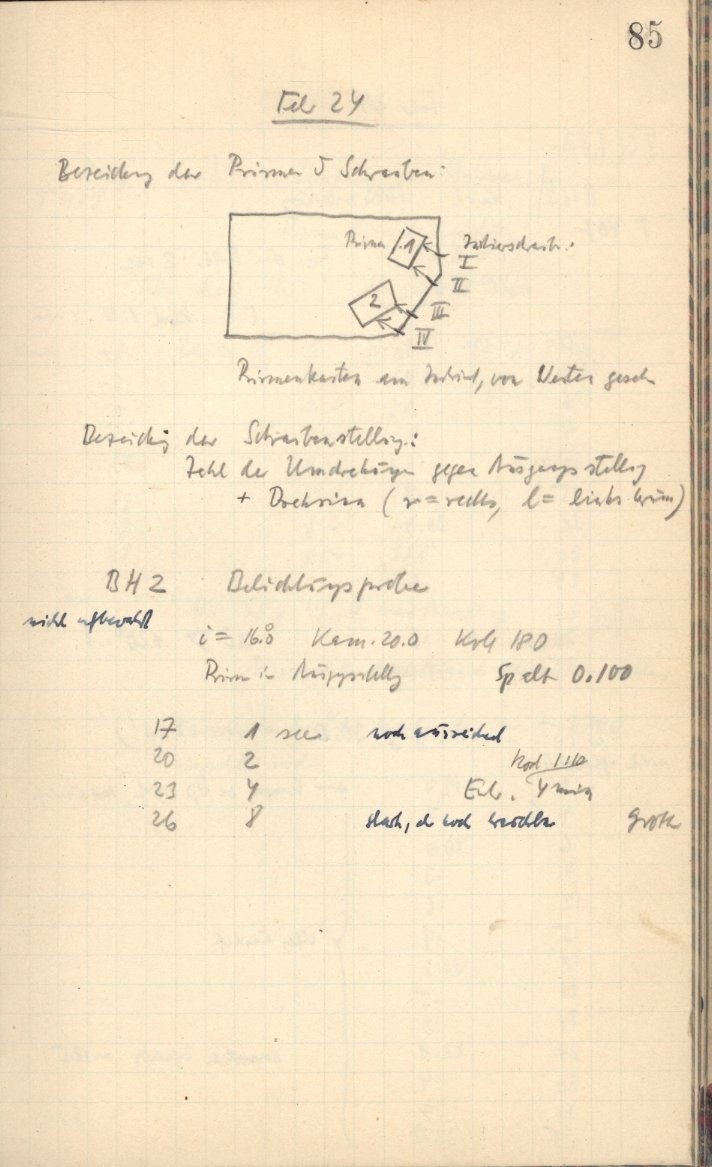 85
Feb 24
Bezeichng der Prismen u Schrauben:
Prisma 1 Justierschraub.:
I
II
2
III
IV
Prismenkasten am Instrument, von Westen geseh
Bezeichng der Schraubenstellng:
Zahl der Umdrehungen gegen Ausgangsstellng
+ Drehsinn (r = rechts, l = links herum)
BH2 Belichtungsprobe
nicht aufbewahrt
i = 16.8 Kam. 20.0 Koll 180
Prism in Ausggsstellg Spalt 0.100
17 1 sec noch ausreichend
20 2 Rod 1:10
23 4 Entw. 4 min
26 8 stark, doch noch brauchbar Grotr